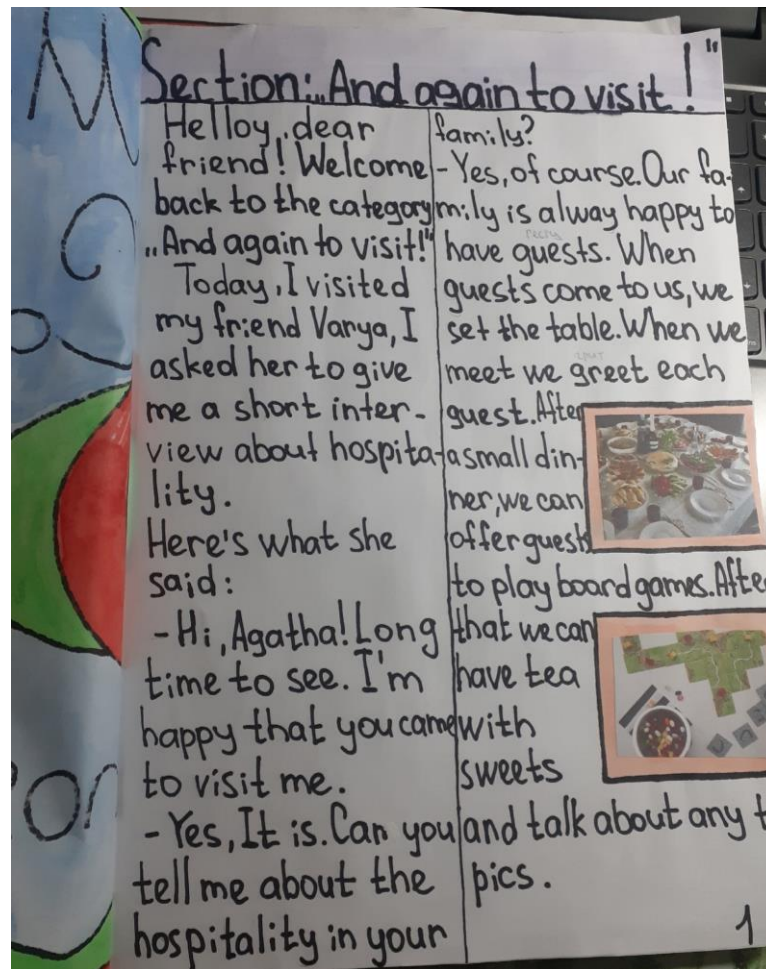 Section: „And again to visit!"
Helloy, dear
friend! Welcome
back to the category
„And again to visit!"
Today, I visited
my friend Varya, I
asked her to give
me a short inter-
view about hospita-
lity.
Here's what she
said:
- Hi, Agatha! Long
time to see. I'm
happy that you came
to visit me.
- Yes, It is. Can you
tell me about the
hospitality in your
family?
- Yes, of course. Our fa-
mily is alway happy to
have guests. When
guests come to us, we
set the table. When we
meet we greet each
guest. After
a small din-
ner, we can
offer guests
to play board games. Afte
that we can
have tea
with
sweets
and talk about any t
pics.
1